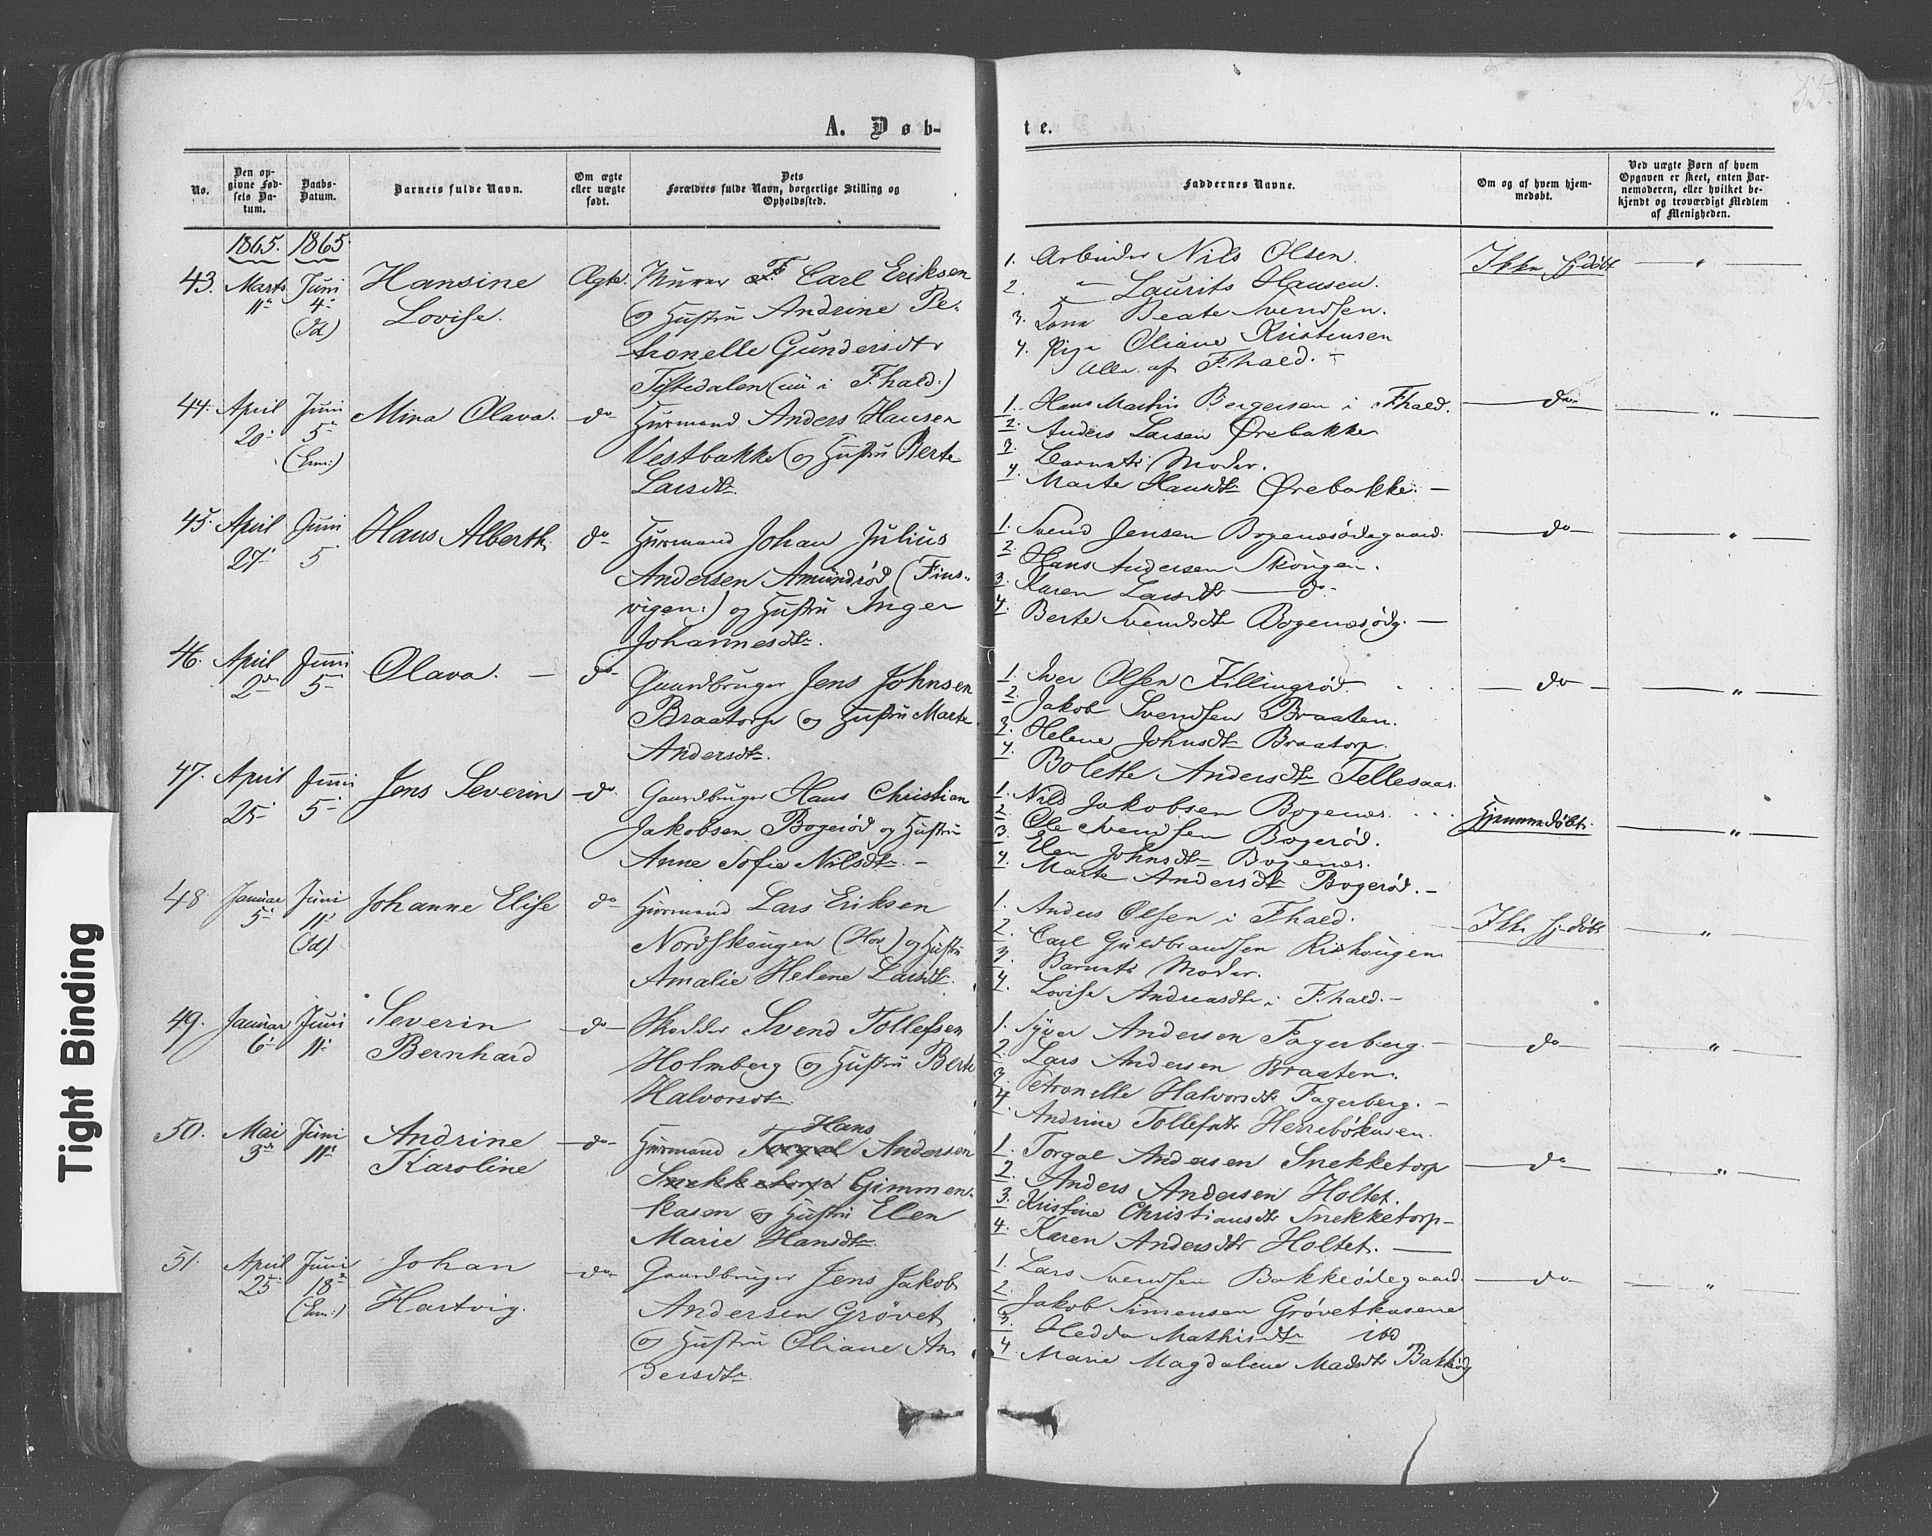 55.
A. Døb-
te.
No.
Den opgivne Fødsels Datum.
Daabs-Datum.
Barnets fulde Navn.
Om ægte eller uægte født.
Dets Forældres fulde Navn, borgerlige Stilling og Opholdssted.
Faddernes Navne.
Om og af hvem hjemmedøbt.
Ved uægte Børn af hvem Opgaven er skeet, enten Barnemoderen, eller hvilket bekjendt og troværdigt Medlem af Menigheden.
1865. 1865.
43. Marts 11. Juni 4. (Fd)
Hansine
Lovise.
Ægte.
Murer Carl Eriksen
og Hustru Andrine Pe-
tronelle Gundersdtr
Tistedalen (nu i Fhald.)
1. Arbeider Nils Olsen.
2. " Laurits Hansen.
3. Kone Beate Svendsen.
4. Pige Oliane Kristensen
Alle af Fhald. -
Ikke hjdøbt
"
44. April 20. Juni 5. (Em:)
Mina Olava.
do
Husmand Anders Hansen
Vestbakke og Hustru Berte
Larsdtr.
1. Hans Martin Bergersen i Fhald.
2. Anders Larsen Ørebakke
3. Barnets Moder.
4. Marte Hansdtr Ørebakke. -
do
"
45. April 27. Juni 5
Hans Alberth.
do
Husmand Johan Julius
Andersen Amundrød (Fins-
vigen:) og Hustru Inger
Johannesdtr.
1. Svend Jensen Bogenæsødegaard.
2. Hans Andersen Skougen.
3. Karen Larsdtr - do -
4. Berte Svendsdtr Bogenæsødg. -
do
"
46. April 2den Juni 5
Olava. -
do
Gaardbruger Jens Johnsen
Braatorp og Hustru Marte
Andersdtr.
1. Iver Olsen Killingrød.
2. Jakob Svendsen Braaten.
3. Helene Johnsdtr Braatorp.
4. Bolette Andersdtr Tellesaas.
do
"
47. April 25 Juni 5
Jens Severin
do
Gaardbruger Hans Christian
Jakobsen Bogerød og Hustru
Anne Sofie Nilsdtr. -
1. Nils Jakobsen Bogenæs.
2. Ole Svendsen Bogerød.
3. Elen Johnsdtr Bogenæs.
4. Marte Andersdtr Bogerød. -
Hjemmedøbt.
"
48. Januar 5. Juni 11. (Fd)
Johanne Elise
do
Husmand Lars Eriksen
Nordskougen (Hov) og Hustru
Amalie Helene Larsdtr.
1. Anders Olsen i Fhald.
2. Carl Guldbrandsen Riskougen
3. Barnets Moder.
4. Lovise Andreasdtr i Fhald. -
Ikke hjdøbt
"
49. Januar 6. Juni 11.
Severin
Bernhard
do
Skredder Svend Tollefsen
Holmberg og Hustru Berte
Halvorsdtr.
1. Syver Andersen Fagerberg. -
2. Lars Andersen Braaten.
3. Petronelle Halvorsdtr Fagerberg. -
4. Andrine Tollefsdtr Herrebökasen.
do
"
50. Mai 3die Juni 11.
Andrine
Karoline
do
Hans
Husmand Torgal Andersen
Snekketorp Gimmen-
kasen og Hustru Elen
Marie Hansdtr.
1. Torgal Andersen Snekketorp
2. Anders Andersen Holtet.
3. Kristine Christiansdtr Snekketorp -
4. Karen Andersdtr Holtet. -
do
"
51. April 25 Juni 18 (Em:)
Johan
Hartvig.
do
Gaardbruger Jens Jakob
Andersen Grövet
og Hustru Oliane An-
dersdtr.
1. Lars Svendsen Bakkeödegaard.
2. Jakob Simensen Grövetkasene
3. Hedda Mathisdtr ibd
4. Marie Magdalene Madsdtr Bakkeödg
do
"
Tight Binding